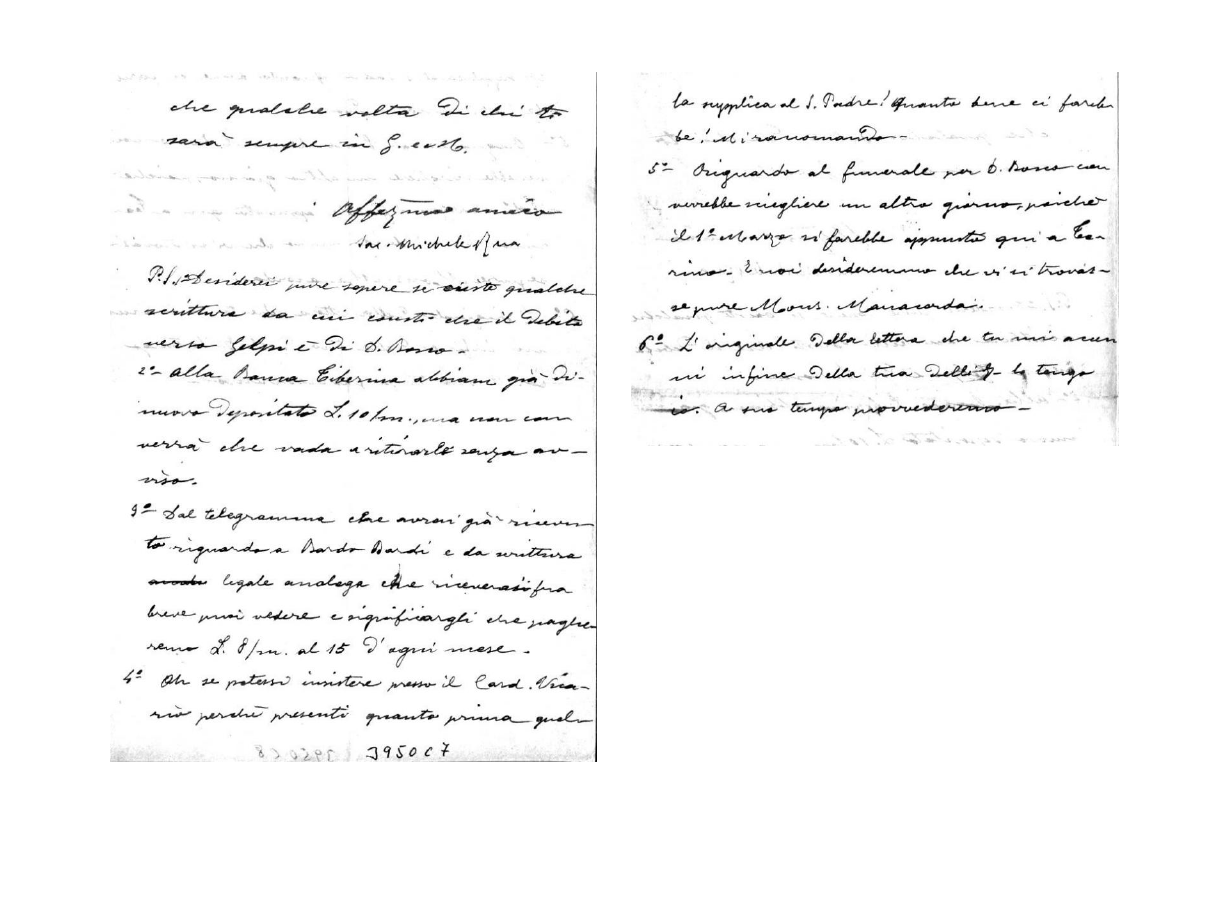 che qualche volta di chi ti
sarà sempre in G. e M.
Affez.mo amico
Sac. Michele Rua
P.S. 1º Desiderei pure sapere se esiste qualche
scrittura da cui consti che il debito
verso Gelpi è di D. Bosco.
2º Alla Banca Tiberina abbiam già di
nuovo depositato L. 10/m., ma non con
verrà che vada a ritirarle senza av-
viso.
3º Dal telegramma che avrai già ricevu
to riguardo a Bardo Bardi e da scrittura
legale analoga che riceverai fra
breve puoi vedere e significargli che paghe-
remo L. 8/m. al 15 d'ogni mese.
4º Oh se potessi insistere presso il Card. Vica-
rio perchè presenti quanto prima quel
3950C7
la supplica al S. Padre! Quanto bene ci fareb
be! Mi raccomando -
5º Riguardo al funerale per D. Bosco con
verrebbe scegliere un altro giorno, poichè
il 1º Marzo si farebbe appunto qui a To-
rino. E noi desideremmo che vi si trovas-
se pure Mons. Manacorda.
6º L'originale della lettera che tu mi accen
ni infine della tua delli 9 - lo tengo
io. A suo tempo provvederemo -